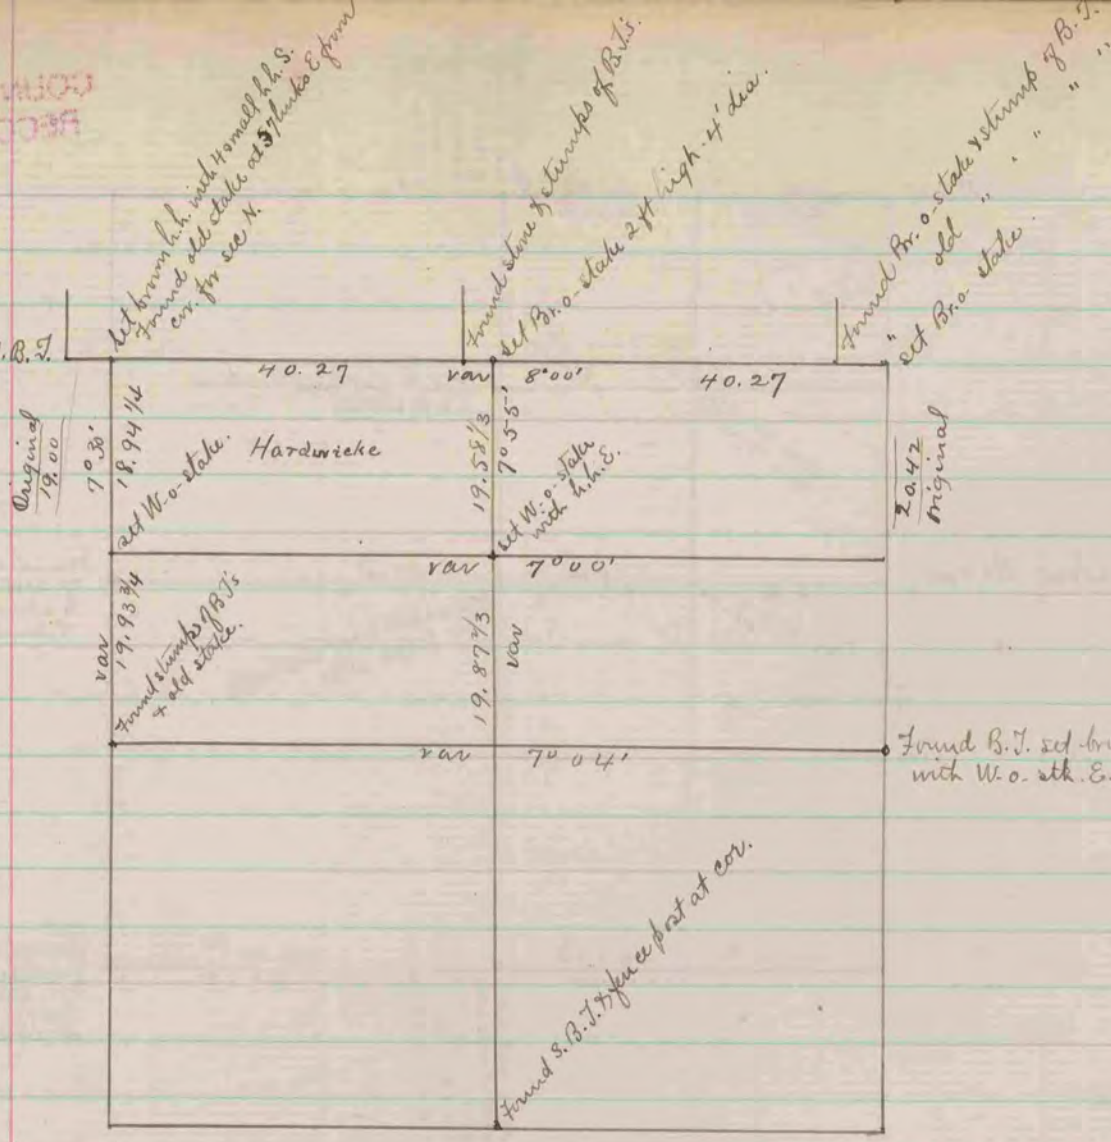 set brown h.h. with 4 small h.h. S.
Found old stake at 57 links E from
cor. for sec N.
Found stone & stumps of B.T's.
set Br. o-stake 2 ft high - 4" dia.
Found Br. o-stake & stump of B.T.
" old " " " "
set Br. o- stake.
B.T.
40.27
var 8°00'
40.27
Original
19.00
7°30'
18.94 1/4
set W-o-stake.
Hardwicke
19.58 1/3
7°55'
set W-o-stake
with h.h. E.
20.42
original
var 7°00'
var
19.93 3/4
Found stumps of B.T's
+ old stake.
19.87 2/3
var
var 7°04'
Found B.T. set
with W-o- stk. E.
Found S.B.T. & fence post at cor.